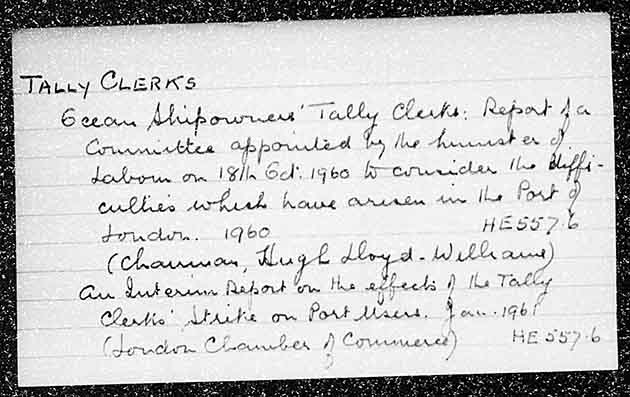 TALLY CLERKS
Ocean Shipowners' Tally Clerks: Report of a
Committee appointed by the Minister of
Labour on 18th Oct. 1960 to consider the diffi-
culties which have arisen in the Port of
London. 1960 HE557.6
(Chairman, Hugh Lloyd-Williams)
An Interim Report on the effects of the Tally
Clerks' Strike on Port Users. Jan. 1961
(London Chamber of Commerce) HE 557.6